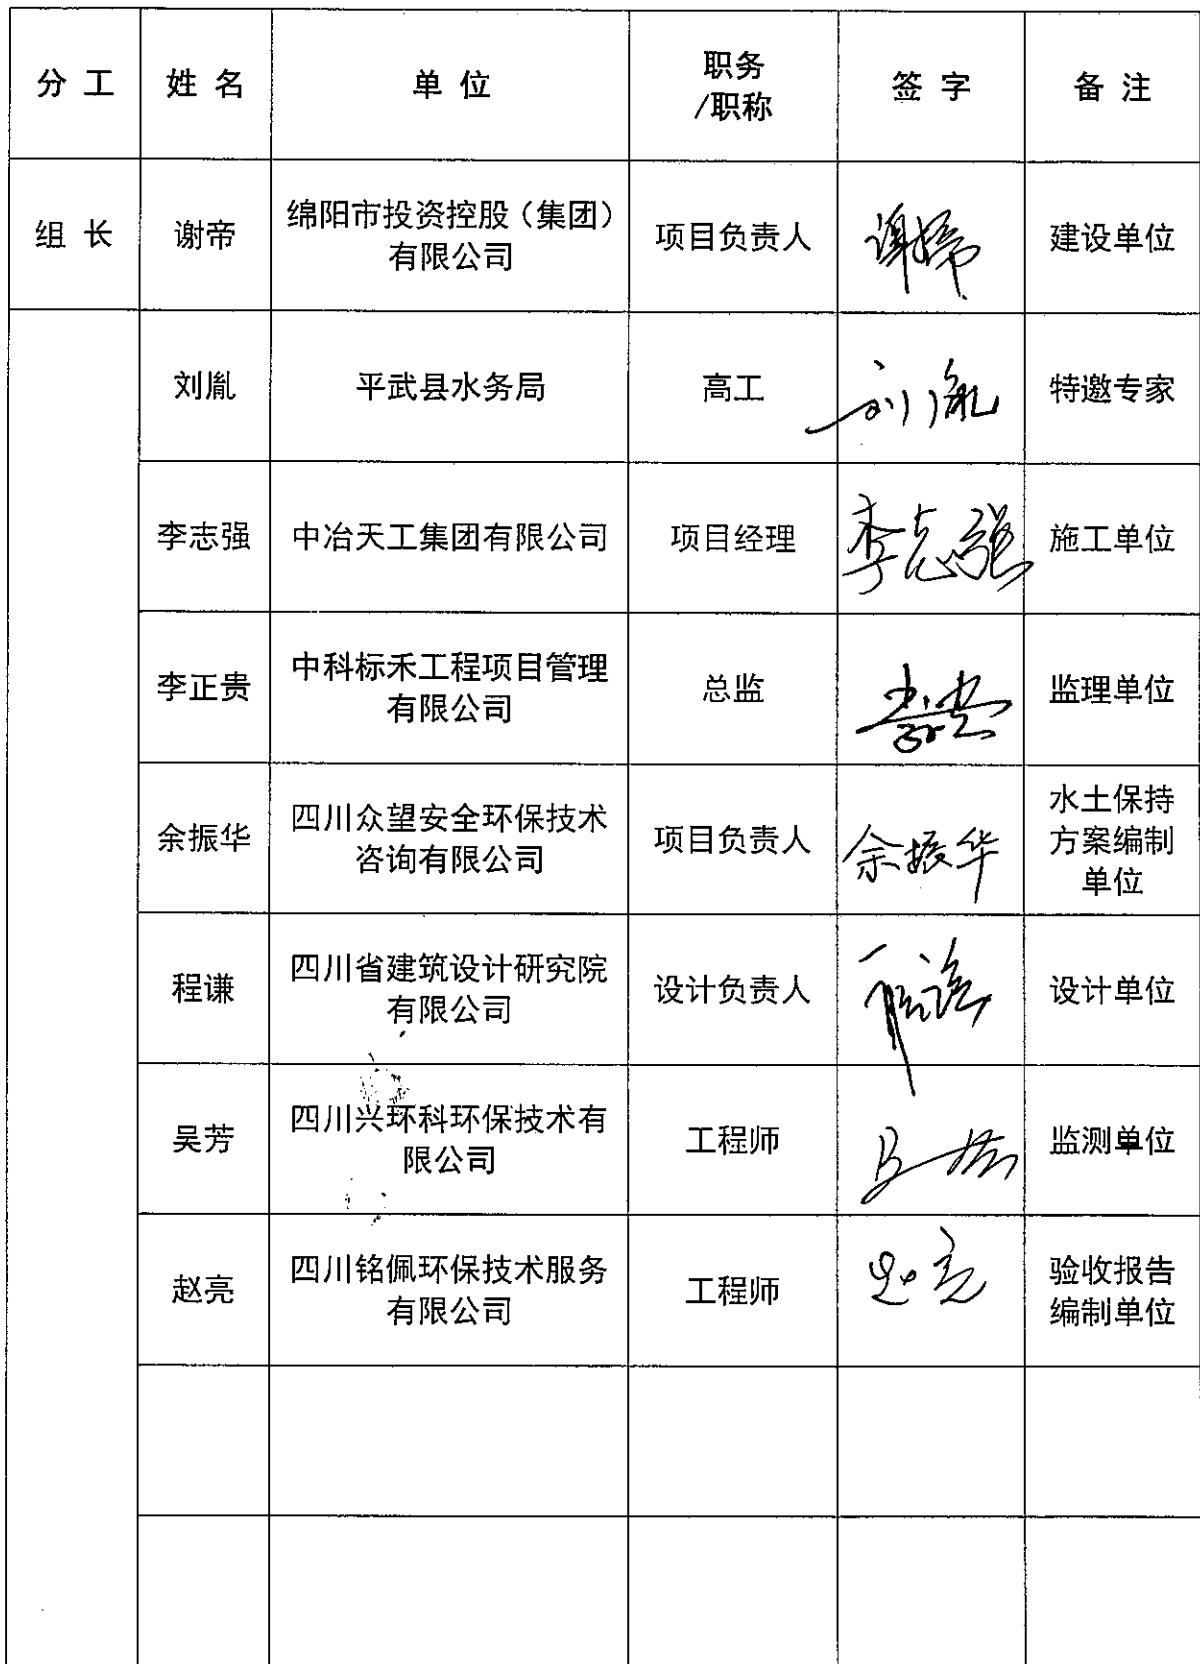 分工 姓名 单位 职务/职称 签字 备注
组长 谢帝 绵阳市投资控股（集团）有限公司 项目负责人 谢帝 建设单位
刘胤 平武县水务局 高工 刘胤 特邀专家
李志强 中冶天工集团有限公司 项目经理 李志强 施工单位
李正贵 中科标禾工程项目管理有限公司 总监 李正贵 监理单位
余振华 四川众望安全环保技术咨询有限公司 项目负责人 余振华 水土保持方案编制单位
程谦 四川省建筑设计研究院有限公司 设计负责人 程谦 设计单位
吴芳 四川兴环科环保技术有限公司 工程师 吴芳 监测单位
赵亮 四川铭佩环保技术服务有限公司 工程师 赵亮 验收报告编制单位